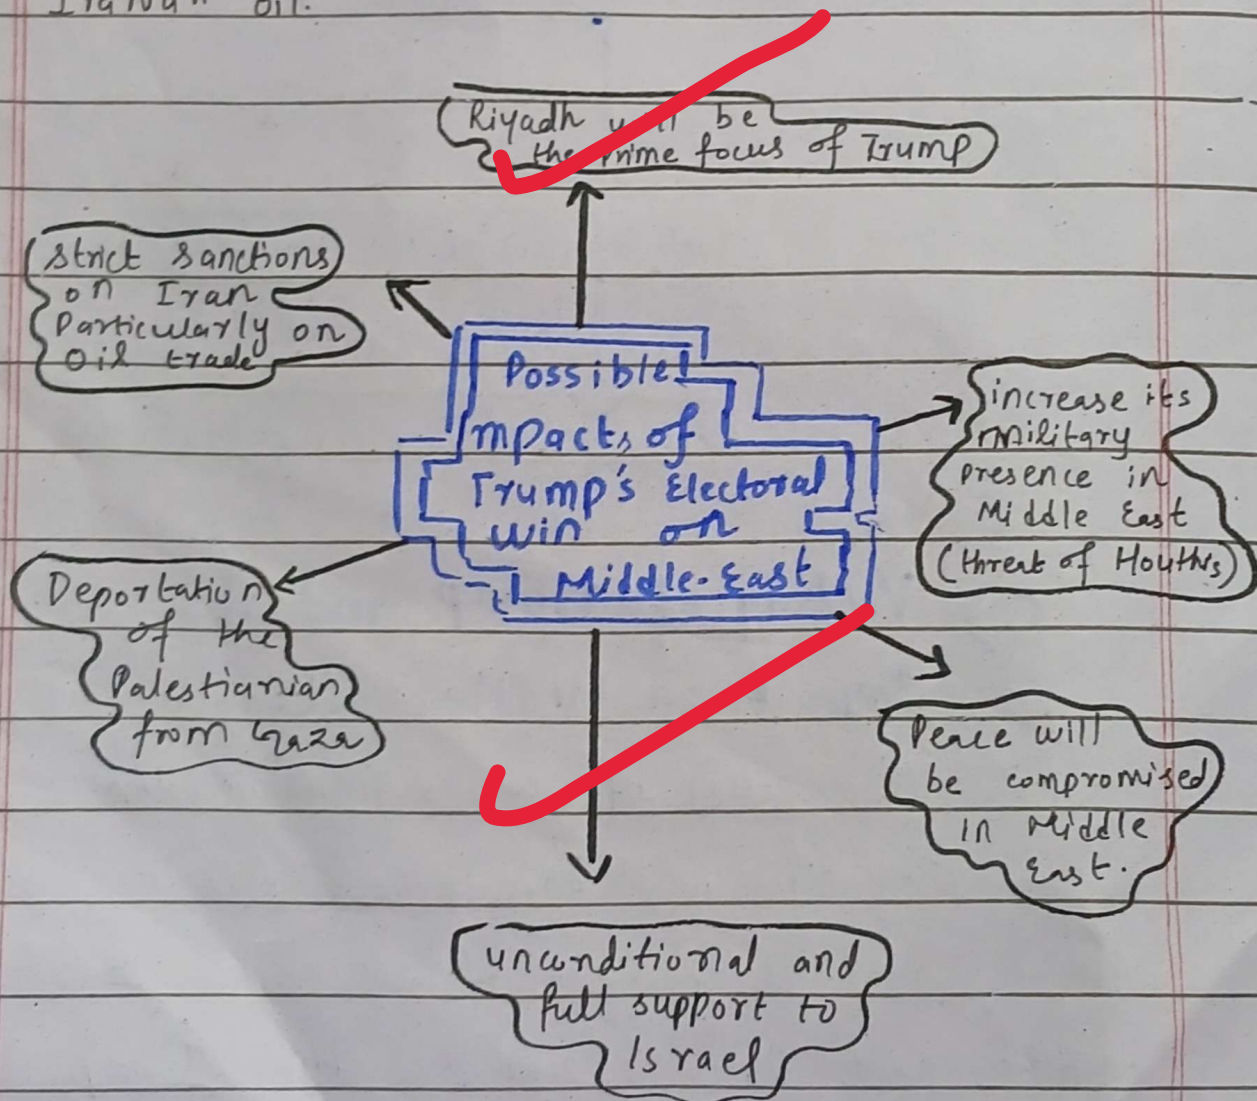 Iranian oil.
Riyadh will be
the prime focus of Trump
Strict Sanctions
on Iran
Particularly on
Oil trade
Possible I
mpacts of
Trump's Electoral
win on
Middle-East
increase its
Military
presence in
Middle East
(threat of Houthis)
Deportation
of the
Palestianian
from Gaza
Peace will
be compromised
in Middle
East.
unconditional and
full support to
Israel